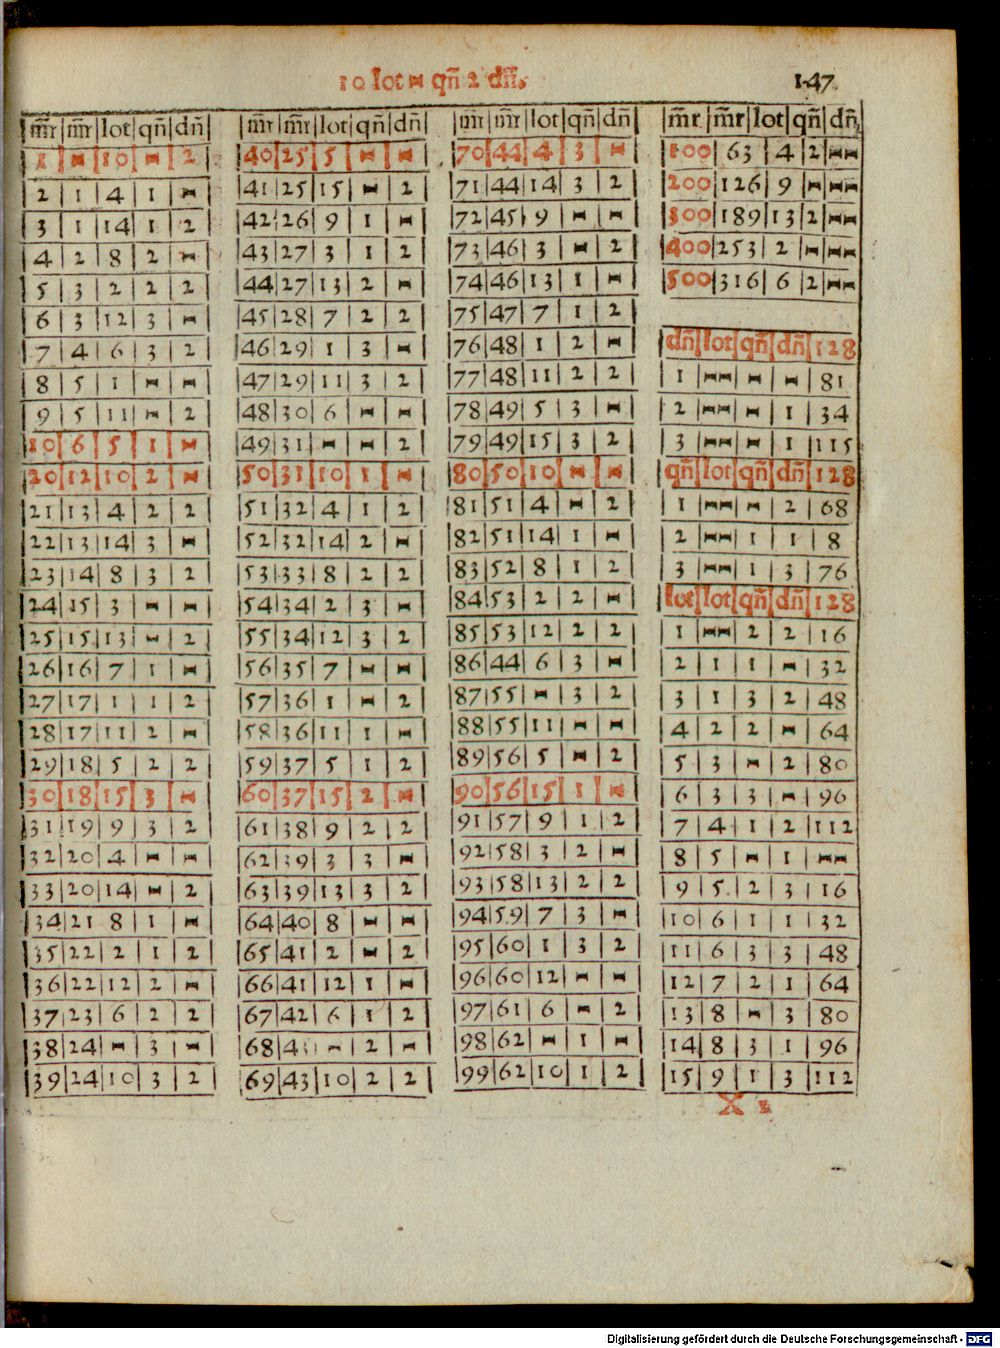 10 lot ⋈ qñ 2 dñ.
147
m̄r m̄r lot qñ dñ
1 ⋈ 10 ⋈ 2
2 1 4 1 ⋈
3 1 14 1 2
4 2 8 2 ⋈
5 3 2 2 2
6 3 12 3 ⋈
7 4 6 3 2
8 5 1 ⋈ ⋈
9 5 11 ⋈ 2
10 6 5 1 ⋈
20 12 10 2 ⋈
21 13 4 2 2
22 13 14 3 ⋈
23 14 8 3 2
24 15 3 ⋈ ⋈
25 15 13 ⋈ 2
26 16 7 1 ⋈
27 17 1 1 2
28 17 11 2 ⋈
29 18 5 2 2
30 18 15 3 ⋈
31 19 9 3 2
32 20 4 ⋈ ⋈
33 20 14 ⋈ 2
34 21 8 1 ⋈
35 22 2 1 2
36 22 12 2 ⋈
37 23 6 2 2
38 24 ⋈ 3 ⋈
39 24 10 3 2
m̄r m̄r lot qñ dñ
40 25 5 ⋈ ⋈
41 25 15 ⋈ 2
42 26 9 1 ⋈
43 27 3 1 2
44 27 13 2 ⋈
45 28 7 2 2
46 29 1 3 ⋈
47 29 11 3 2
48 30 6 ⋈ ⋈
49 31 ⋈ ⋈ 2
50 31 10 1 ⋈
51 32 4 1 2
52 32 14 2 ⋈
53 33 8 2 2
54 34 2 3 ⋈
55 34 12 3 2
56 35 7 ⋈ ⋈
57 36 1 ⋈ 2
58 36 11 1 ⋈
59 37 5 1 2
60 37 15 2 ⋈
61 38 9 2 2
62 39 3 3 ⋈
63 39 13 3 2
64 40 8 ⋈ ⋈
65 41 2 ⋈ 2
66 41 12 1 ⋈
67 42 6 1 2
68 4 ⋈ 2 ⋈
69 43 10 2 2
m̄r m̄r lot qñ dñ
70 44 4 3 ⋈
71 44 14 3 2
72 45 9 ⋈ ⋈
73 46 3 ⋈ 2
74 46 13 1 ⋈
75 47 7 1 2
76 48 1 2 ⋈
77 48 11 2 2
78 49 5 3 ⋈
79 49 15 3 2
80 50 10 ⋈ ⋈
81 51 4 ⋈ 2
82 51 14 1 ⋈
83 52 8 1 2
84 53 2 2 ⋈
85 53 12 2 2
86 44 6 3 ⋈
87 55 ⋈ 3 2
88 55 11 ⋈ ⋈
89 56 5 ⋈ 2
90 56 15 1 ⋈
91 57 9 1 2
92 58 3 2 ⋈
93 58 13 2 2
94 59 7 3 ⋈
95 60 1 3 2
96 60 12 ⋈ ⋈
97 61 6 ⋈ 2
98 62 ⋈ 1 ⋈
99 62 10 1 2
m̄r. m̄r lot qñ dñ
100 63 4 2 ⋈⋈
200 126 9 ⋈ ⋈⋈
300 189 13 2 ⋈⋈
400 253 2 ⋈ ⋈⋈
500 316 6 2 ⋈⋈
dñ lot qñ dñ 128
1 ⋈⋈ ⋈ ⋈ 81
2 ⋈⋈ ⋈ 1 34
3 ⋈⋈ ⋈ 1 115
qñ lot qñ dñ 128
1 ⋈⋈ ⋈ 2 68
2 ⋈⋈ 1 1 8
3 ⋈⋈ 1 3 76
lot lot qñ dñ 128
1 ⋈⋈ 2 2 16
2 1 1 ⋈ 32
3 1 3 2 48
4 2 2 ⋈ 64
5 3 ⋈ 2 80
6 3 3 ⋈ 96
7 4 1 2 112
8 5 ⋈ 1 ⋈⋈
9 5 2 3 16
10 6 1 1 32
11 6 3 3 48
12 7 2 1 64
13 8 ⋈ 3 80
14 8 3 1 96
15 9 1 3 112
X
Digitalisierung gefördert durch die Deutsche Forschungsgemeinschaft - DFG